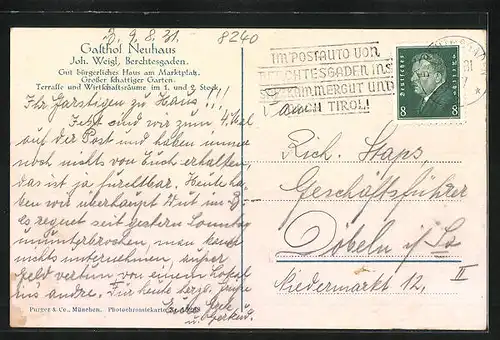 9.8.31.
8240
Gasthof Neuhaus
Joh. Weigl, Berchtesgaden.
Gut bürgerliches Haus am Marktplatz.
Großer schattiger Garten.
Terrasse und Wirtschaftsräume im 1. und 2. Stock.
Ihr Garstigen zu Haus!!!
Jetzt sind wir zum 4. Mal
auf der Post und haben immer
noch nichts von Euch erhalten,
das ist ja furchtbar. Heute ha-
ben wir überhaupt
es regnet seit gestern Sonntag
ununterbrochen, man kann
nichts unternehmen, außer
von einem Lokal
ins andre. Für heute herzl. Grüße
Purger & Co., München. Photochromiekarte
IM POSTAUTO VON
BERCHTESGADEN INS
SALZKAMMERGUT UND
NACH TIROL!
Deutsches Reich
8 8
Rich. Staps,
Geschäftsführer
Döbeln i/Sa
Niedermarkt 12, II